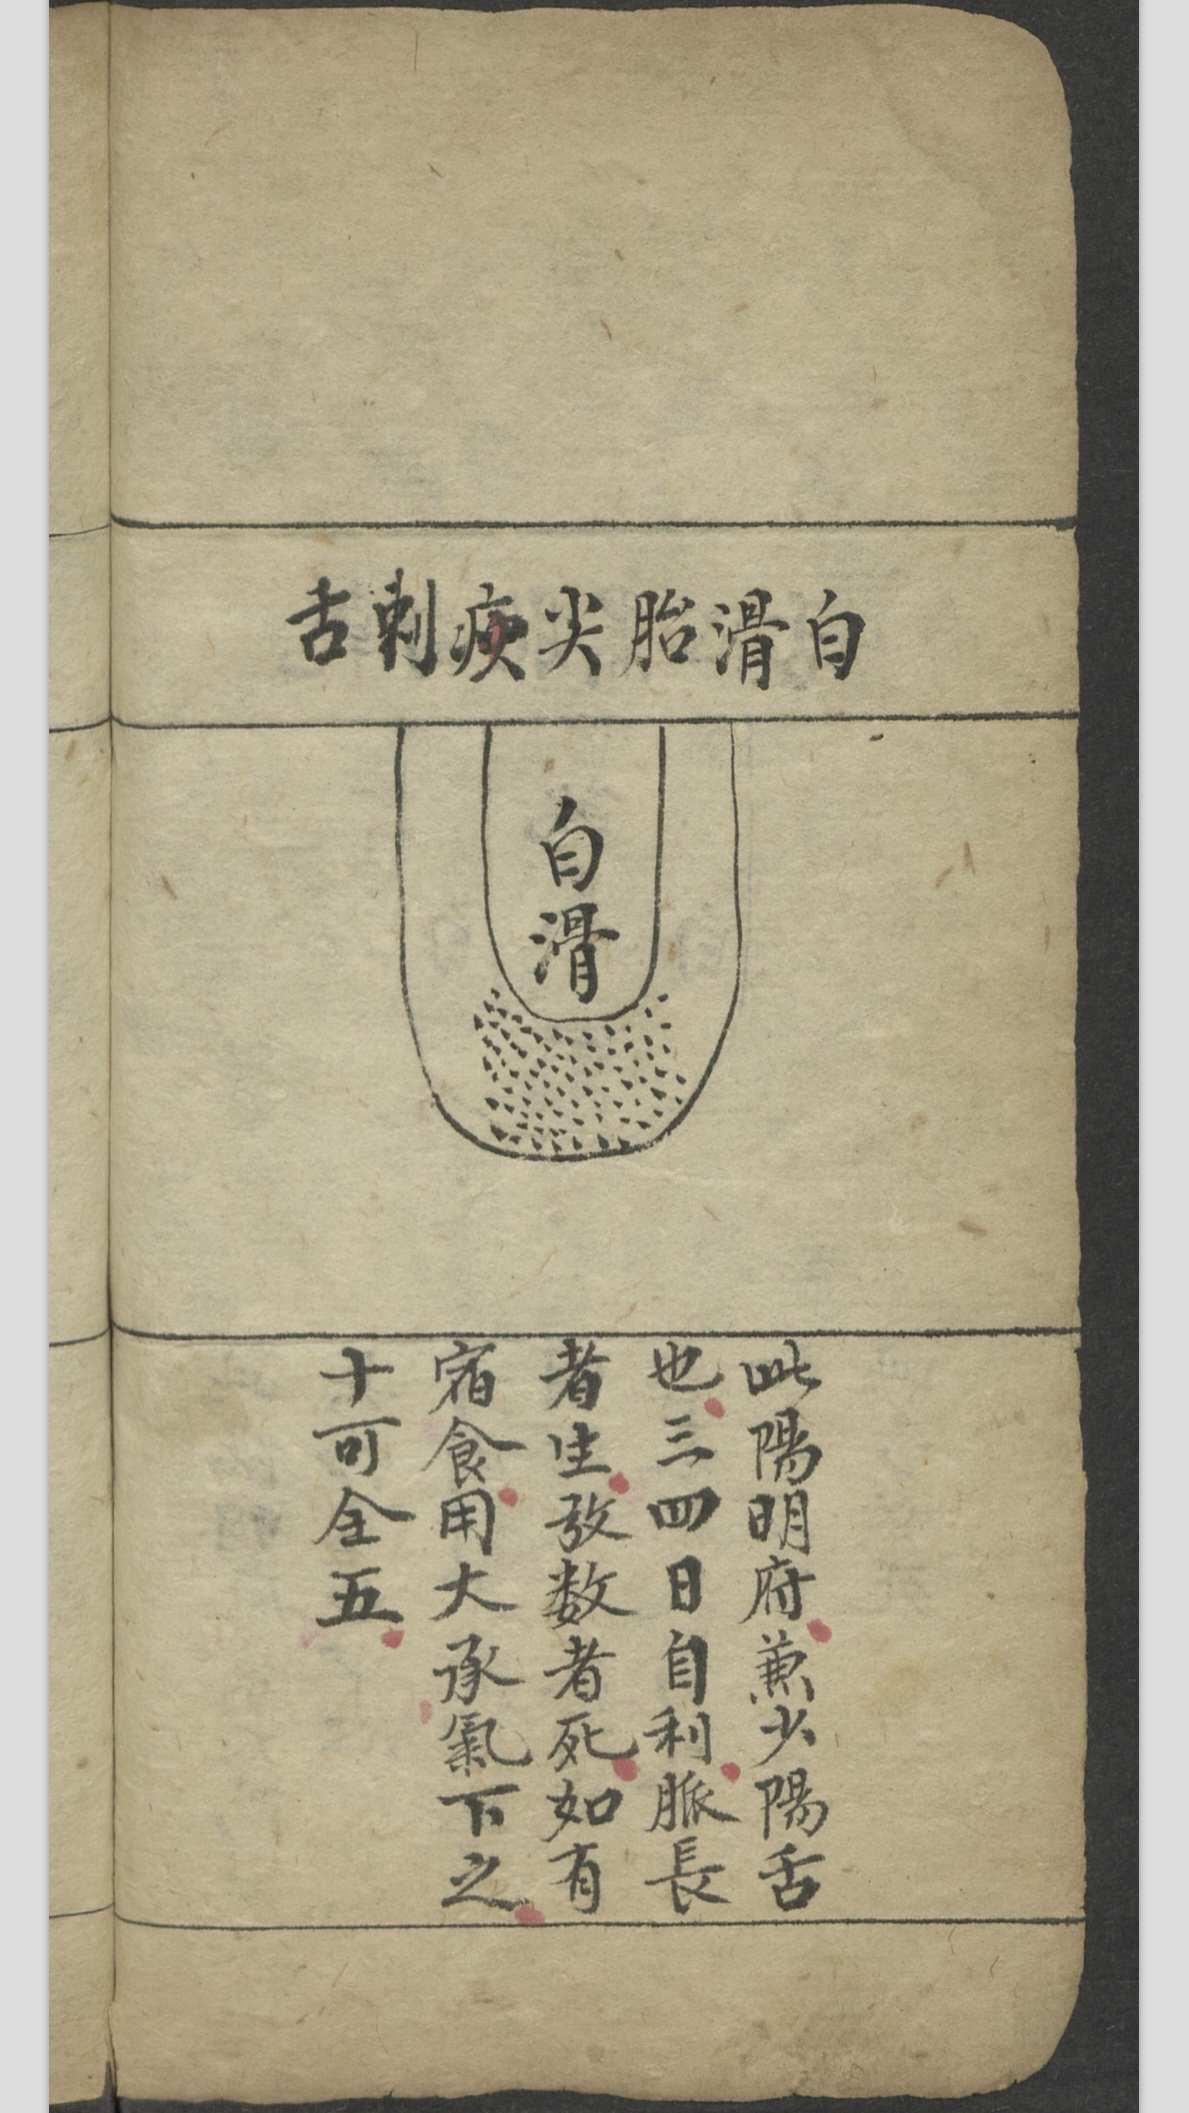 白滑胎尖刺舌
白滑
此陽明府兼少陽舌
也三四日自利脈長
者生弦数者死如有
宿食用大承氣下之
十可全五